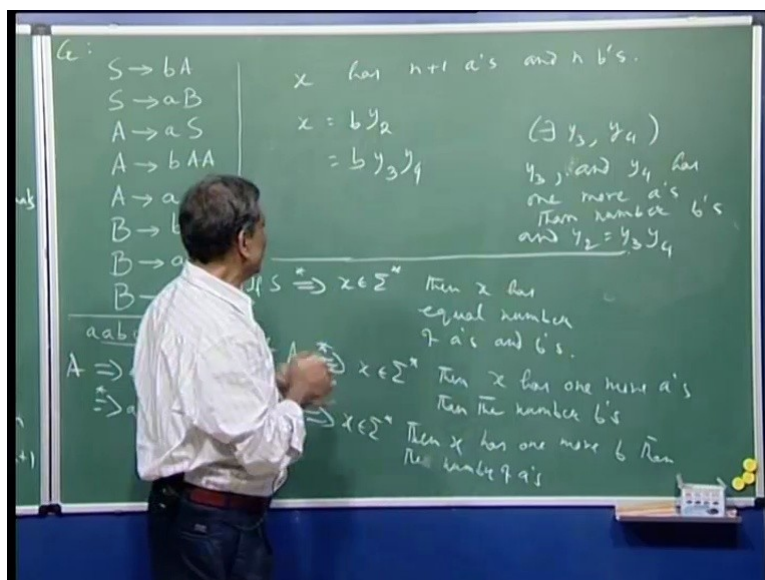 G :
S → bA
S → aB
A → aS
A → bAA
A → a
B → b
B → a
B →
x has n+1 a's and n b's.
x = by₂
= by₃y₄
(∃ y₃, y₄)
y₃, and y₄ has
one more a's
than number b's
and y₂ = y₃y₄
If S ⇒* x ∈ Σ* Then x has
equal number
of a's and b's.
A ⇒* x ∈ Σ* Then x has one more a's
than the number b's
⇒ x ∈ Σ* Then x has one more b than
the number of a's
aab
A ⇒
⇒* a